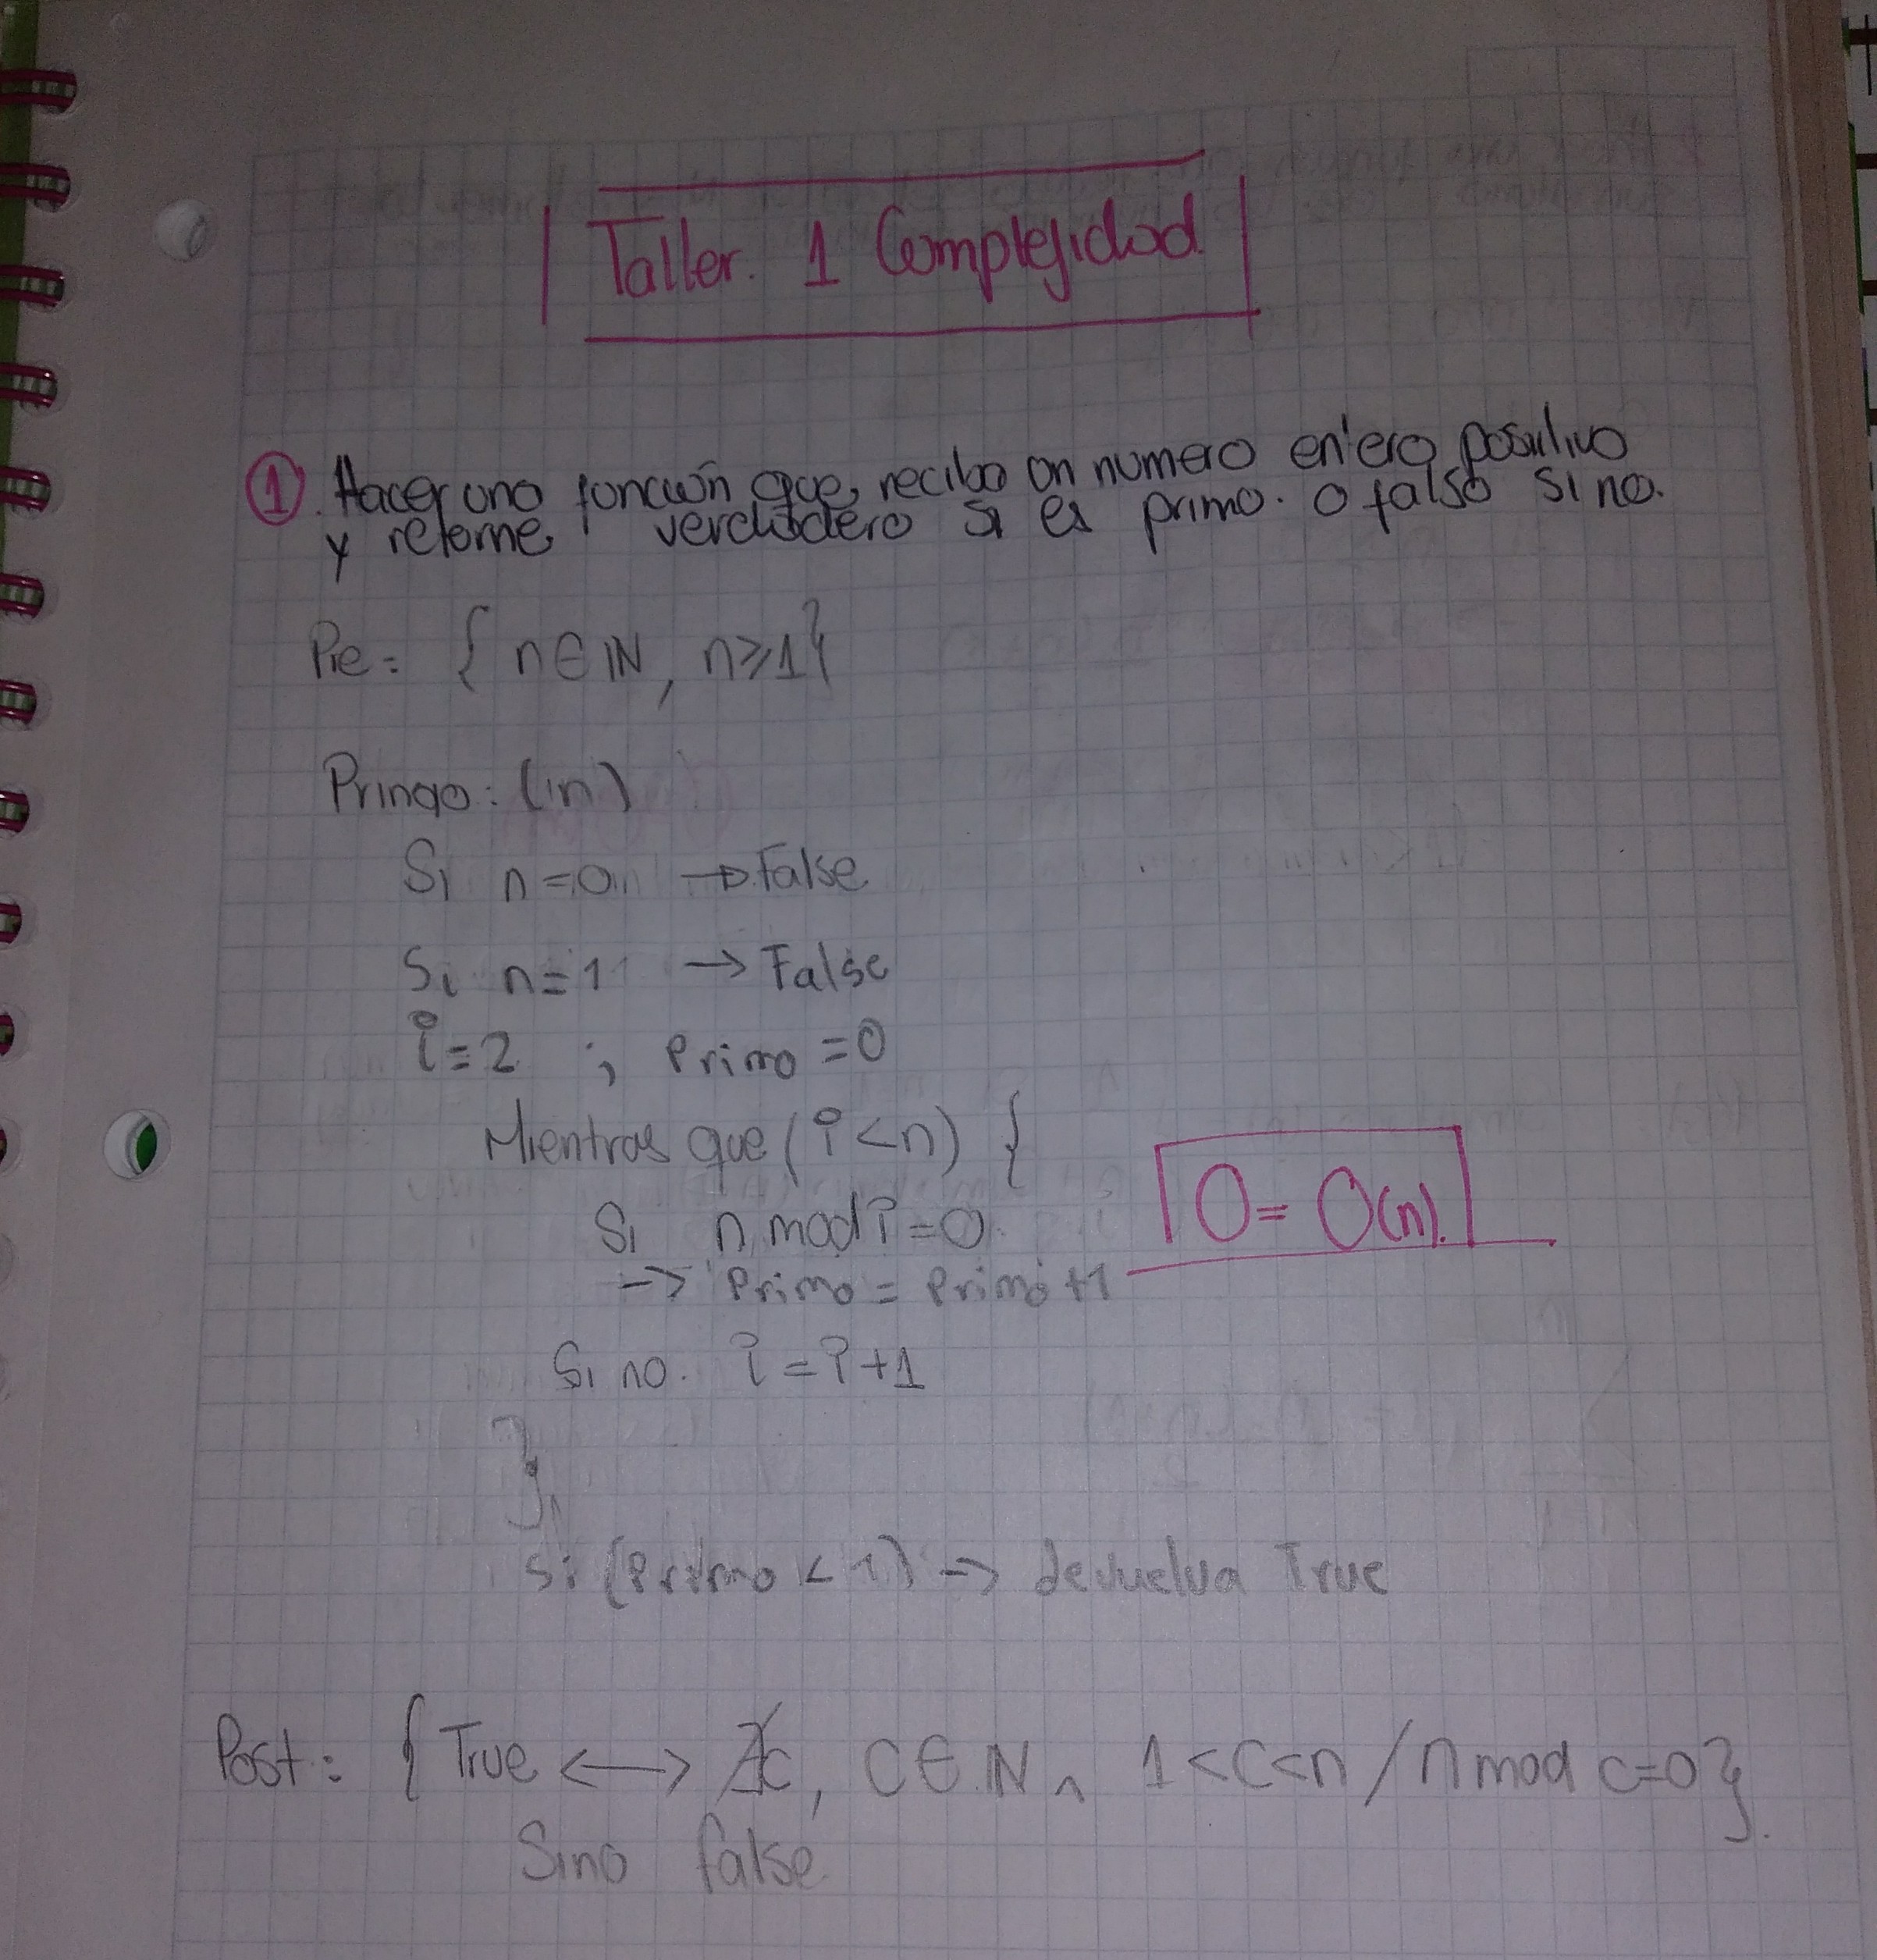 Taller. 1 Complejidad
① Hacer una función que, reciba un numero entero positivo
y retorne verdadero si es primo. o falso si no.
Pre: { n ∈ IN, n ≥ 1 }
Pringo: (in)
Si n = 0 → False
Si n = 1 → False
i = 2 ; Primo = 0
Mientras que ( i < n ) {
Si n mod i = 0
→ Primo = Primo + 1
Si no. i = i + 1
}
O = O(n).
Si (Primo < 1) → devuelva True
Post: { True ↔ ∄c, C ∈ N ∧ 1 < C < n / n mod c = 0 }.
Sino false